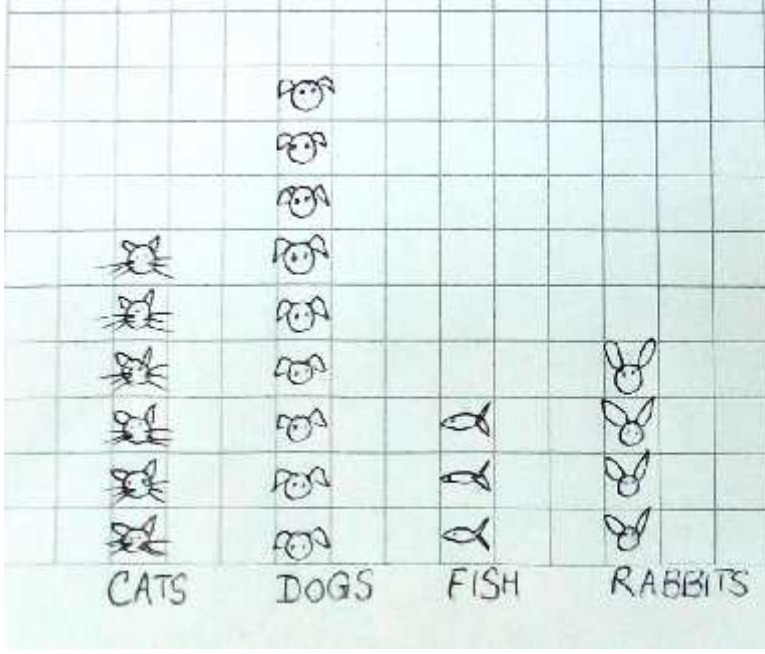 CATS DOGS FISH RABBITS